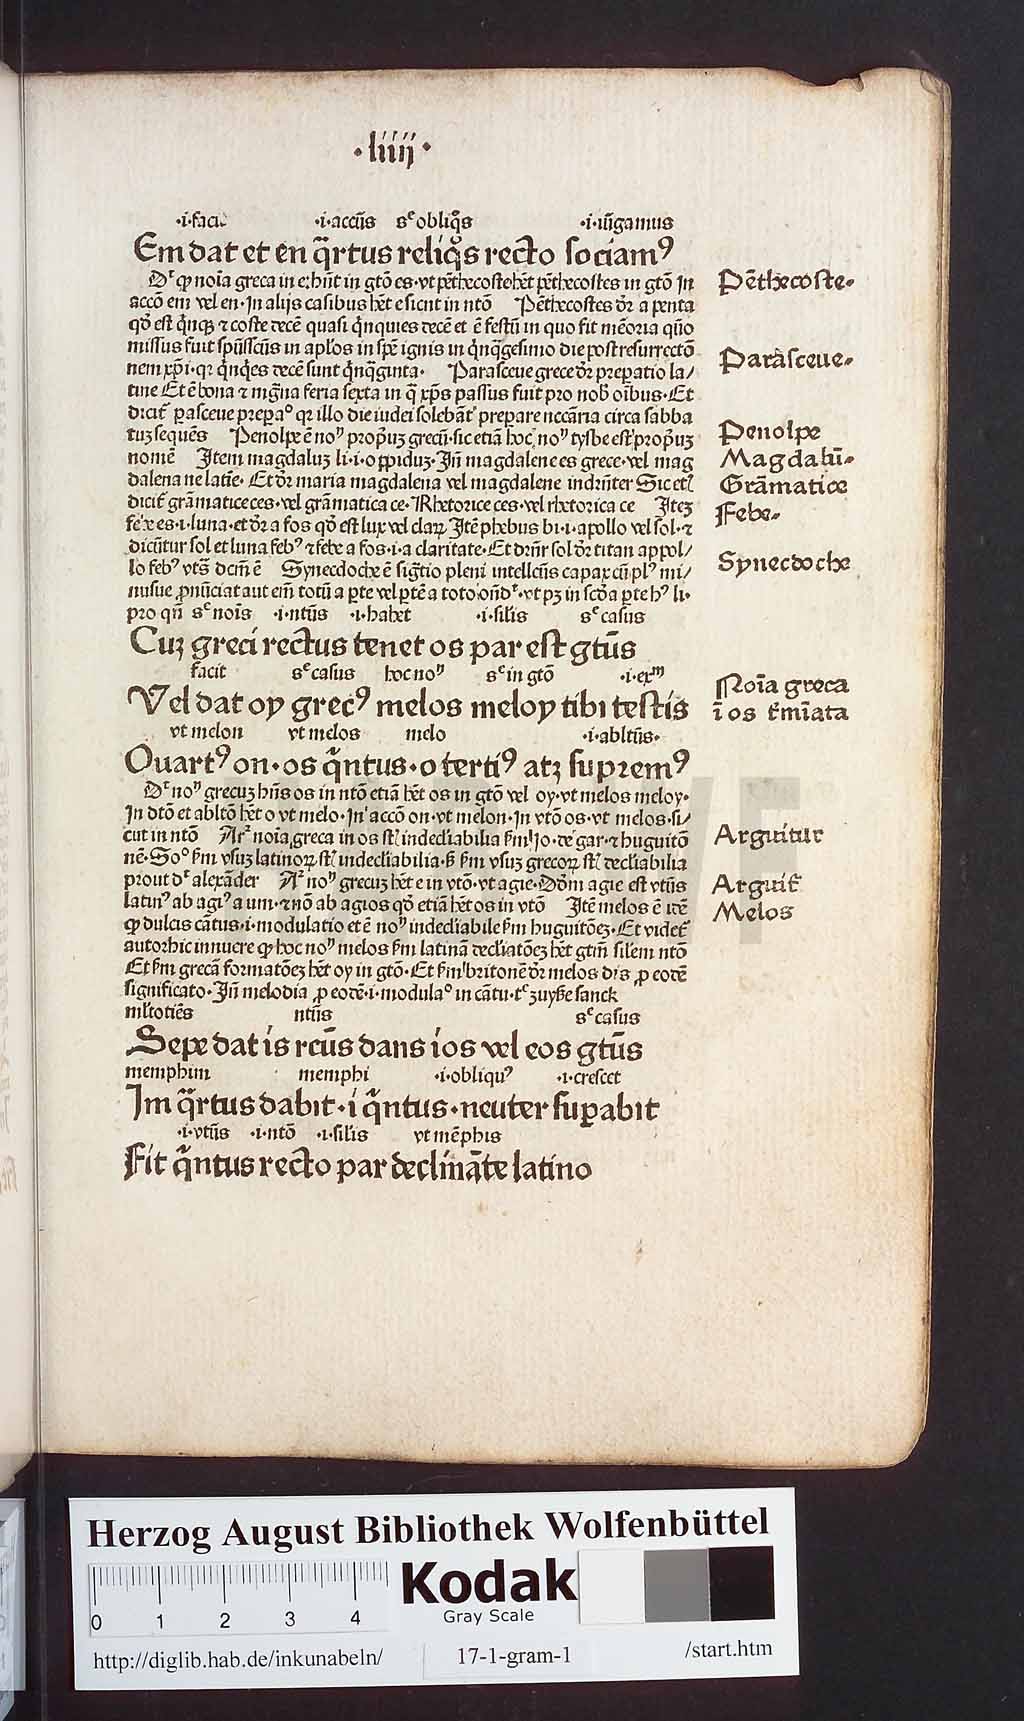 ·liiij·
·i·faci ·i·accūs sᵉ obliqͦs ·i·iūgamus
Em dat et en qᷓrtus reliqͦs recto sociamꝰ
Pēthecoste·
accō em vel en· In alijs casibus hēt e sicut in ntō Pēthecostes dr̄ a penta
qd̓ est qͥnqꝫ ⁊ coste decē quasi qͥnquies decē et ē festū in quo fit mēoria qūo
missus fuit spūssctūs in aplōs in spē ignis in qͥnqᷓgesimo die post resurrectō
nem xpī·i·qꝛ qͥnqͥes decē sunt qͥnqᷓginta· Parasceue grece dr̄ preparatio la/
Parasceue·
tine Et ē bona ⁊ mgͣna feria sexta in qͣ xp̄s passus fuit pro nob̓ oībus· Et
dicit᷑ ꝑasceue prepaᵒ qꝛ illo die iudei solebāt᷑ preparare nccāria circa sabba
tuꝫ sequēs Penolpe ē noᷠ propꝛiuꝫ grecū· sic etiā hoc noᷠ tysbe est propꝛiuꝫ
Penolpe
nomē Item magdaluꝫ li·i·oppiduꝫ· Iñ magdalene es grece· vel mag
Magdalū·
dalena ne latīe· Et dr̄ maria magdalena vel magdalene indr̄nter Sic etͥ
Grāmatice
dicit᷑ grāmatice ces· vel grāmatica ce· Rhetorice ces· vel rhetorica ce Iteꝫ
Febe·
febe es·i·luna· et dr̄ a fos qd̓ est lux vel claꝝ Itē phebus bi·i·apollo vel sol·⁊
dicūtur sol et luna febꝰ ⁊ febe a fos·i·a claritate· Et dr̄nr sol dr̄ titan appol/
lo febꝰ vtsͣ dcm̄ ē Synecdoche ē signtio pleni intellctūs capax cū plꝰ mi/
Synecdoche
nusue ꝓnūciat aut em̄ totū a ꝑte vel ꝑtē a toto
pro qn̄ sᵉ noīs ·i·ntūs ·i·habet ·i·silis sᵉ casus
Cuꝫ greci rectus tenet os par est gtūs
facit sᵉ casus hoc noᷠ sᵉ in gtō ·i·exᵐ
Vel dat oy grecꝰ melos meloy tibi testis
Noīa greca
ī os t̄mīata
vt melon vt melos melo ·i·abltūs·
Quartꝰ on·os qᷓntus·o tertiꝰ atqꝫ supremꝰ
Dᷣ noᷠ grecuꝫ hn̄s os in ntō etiā hēt os in gtō vel oy·vt melos meloy·
In dtō et abltō hēt o vt melo· In accō on·vt melon· In vtō os·vt melos·si/
cut in ntō Arᷣ noīa greca in os st̄ indeclīabilia ẜm Io·de gar·⁊ huguitō
Arguitur
nē· Soᵒ ẜm vsuꝫ latinoꝝ st̄ indeclīabilia·ẞ ẜm vsuꝫ grecoꝝ st̄ declīabilia
prout dᷣ alexāder Arᷣ noᷠ grecuꝫ hēt e in vtō·vt agie· Dōm agie est vtūs
Arguit᷑
latinꝰ ab agiꝰ a um·⁊ nō ab agios qd̓ etiā hēt os in vtō Itē melos ē idē
Melos
qd̓ dulcis cātus·i·modulatio et ē noᷠ indeclīabile ẜm huguitōeꝫ· Et videt᷑
autor hic innuere qd̓ hoc noᷠ melos ẜm latinā declīatōeꝫ hēt gtm̄ silem ntō
Et ẜm grecā formatōeꝫ hēt oy in gtō· Et ẜm britonē dr̄ melos dis ꝓ eodē
significato· Iñ melodia ꝓ eodē·i·modulaᵒ in cātu·
ml̓totiēs ntūs sᵉ casus
Sepe dat is rcūs dans ios vel eos gtūs
memphim memphi ·i·obliquꝰ ·i·crescet
Im qᷓrtus dabit·i qᷓntus·neuter suꝑabit
·i·vtūs ·i·ntō ·i·silis vt mēphis
Fit qᷓntus recto par declināte latino
Herzog August Bibliothek Wolfenbüttel
0 1 2 3 4
Kodak
Gray Scale
http://diglib.hab.de/inkunabeln/ 17-1-gram-1 /start.htm